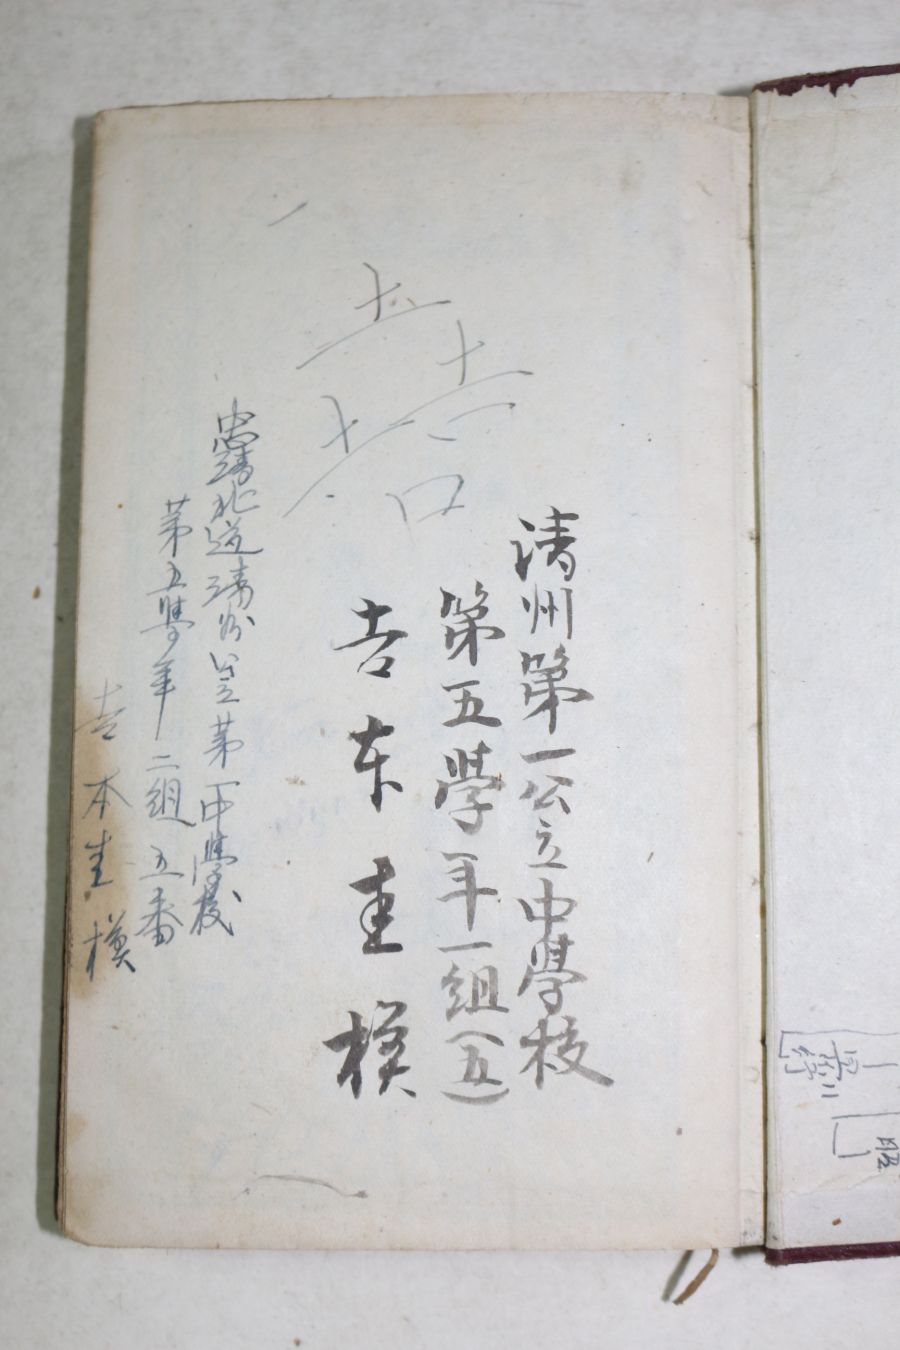 淸州第一公立中學校
第五學年一組(五)
吉本圭模
忠淸北道淸州公立第一中學校
第五學年二組五番
吉本圭模